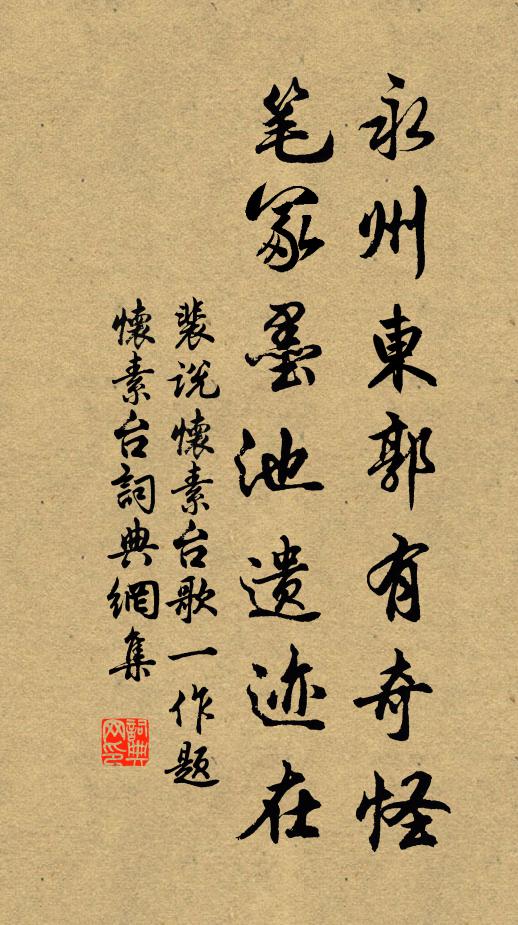 永州東郭有奇怪
笔冢墨池遗迹在
裴说懷素台歌一作題
懷素台詞典網集
詞典网印